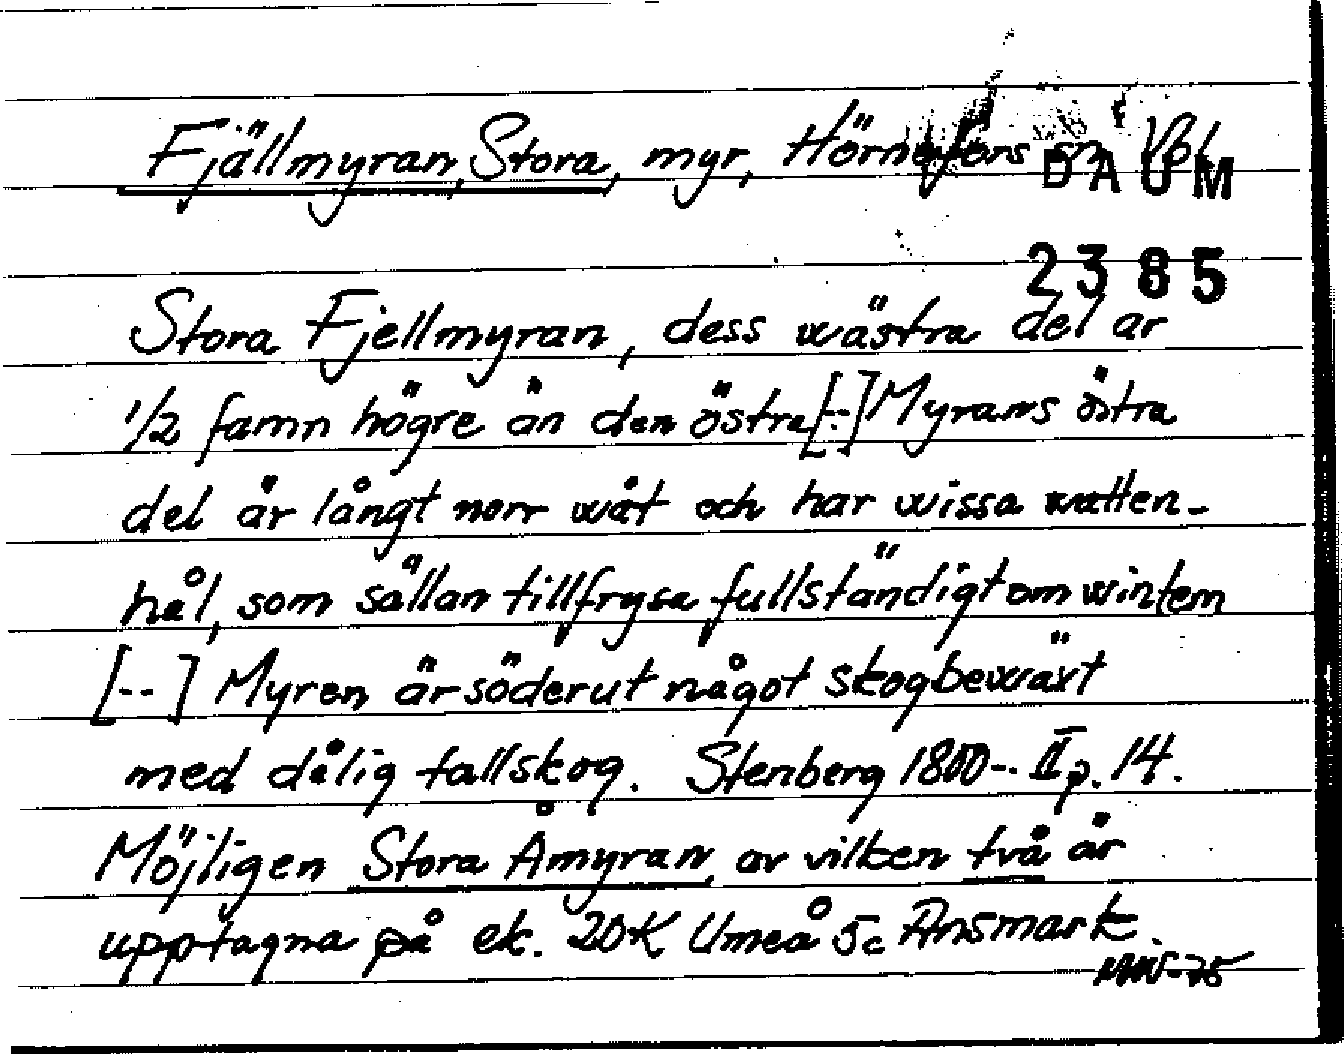 Fjällmyran, Stora, myr, Hörnefors sn Vbl
DAUM
2385
Stora Fjellmyran, dess wästra del är
1/2 famn högre än den östra [--] Myrans östra
del är långt norr wåt och har wissa watten-
hål, som sällan tillfrysa fullständigt om wintern
[--] Myren är söderut något skogbewäxt
med dålig tallskog. Stenberg 1800-. II p. 14.
Möjligen Stora Åmyran, av vilken två är
upptagna på ek. 20K Umeå 5c Ansmark.